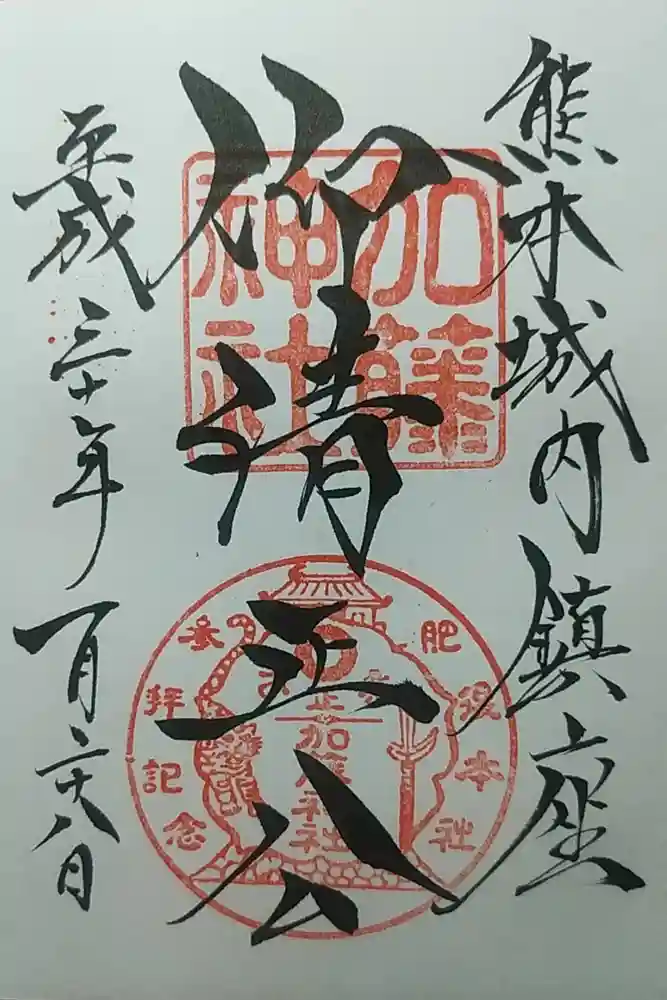 熊本城内鎮座
仰清正公
平成三十年一月二十八日
加藤神社
肥後本社
参拝記念
加藤神社